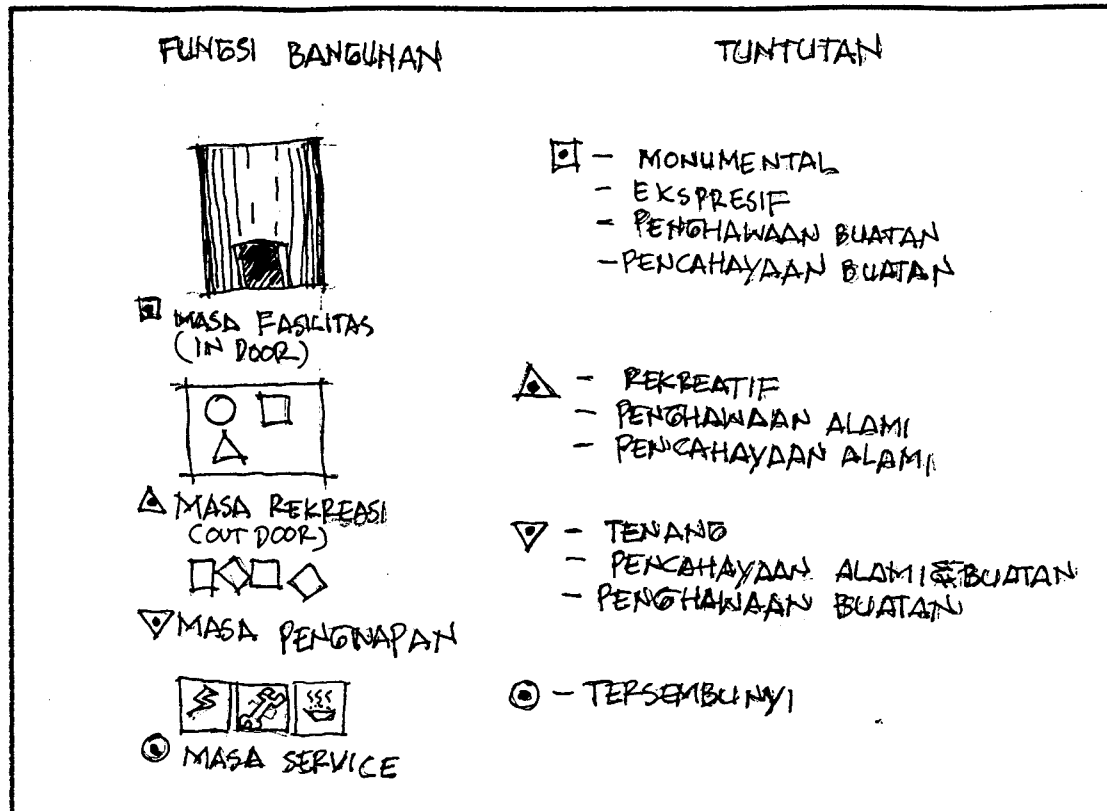 FUNGSI BANGUNAN
MASA FASILITAS
(IN DOOR)
MASA REKREASI
(OUT DOOR)
MASA PENGINAPAN
MASA SERVICE
TUNTUTAN
- MONUMENTAL
- EKSPRESIF
- PENGHAWAAN BUATAN
- PENCAHAYAAN BUATAN
- REKREATIF
- PENGHAWAAN ALAMI
- PENCAHAYAAN ALAMI
- TENANG
- PENCAHAYAAN ALAMI & BUATAN
- PENGHAWAAN BUATAN
- TERSEMBUNYI